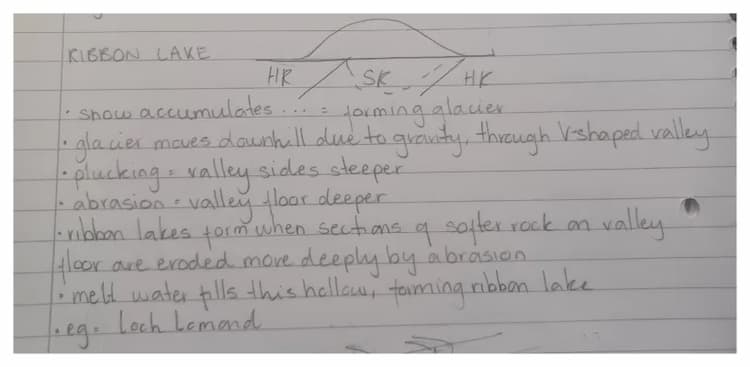 RIBBON LAKE
HR SR HR
• snow accumulates ... = forming glacier
• glacier moves downhill due to gravity, through V-shaped valley
• plucking = valley sides steeper
• abrasion = valley floor deeper
• ribbon lakes form when sections of softer rock on valley
floor are eroded more deeply by abrasion
• melt water fills this hollow, forming ribbon lake
• eg = Loch Lomond